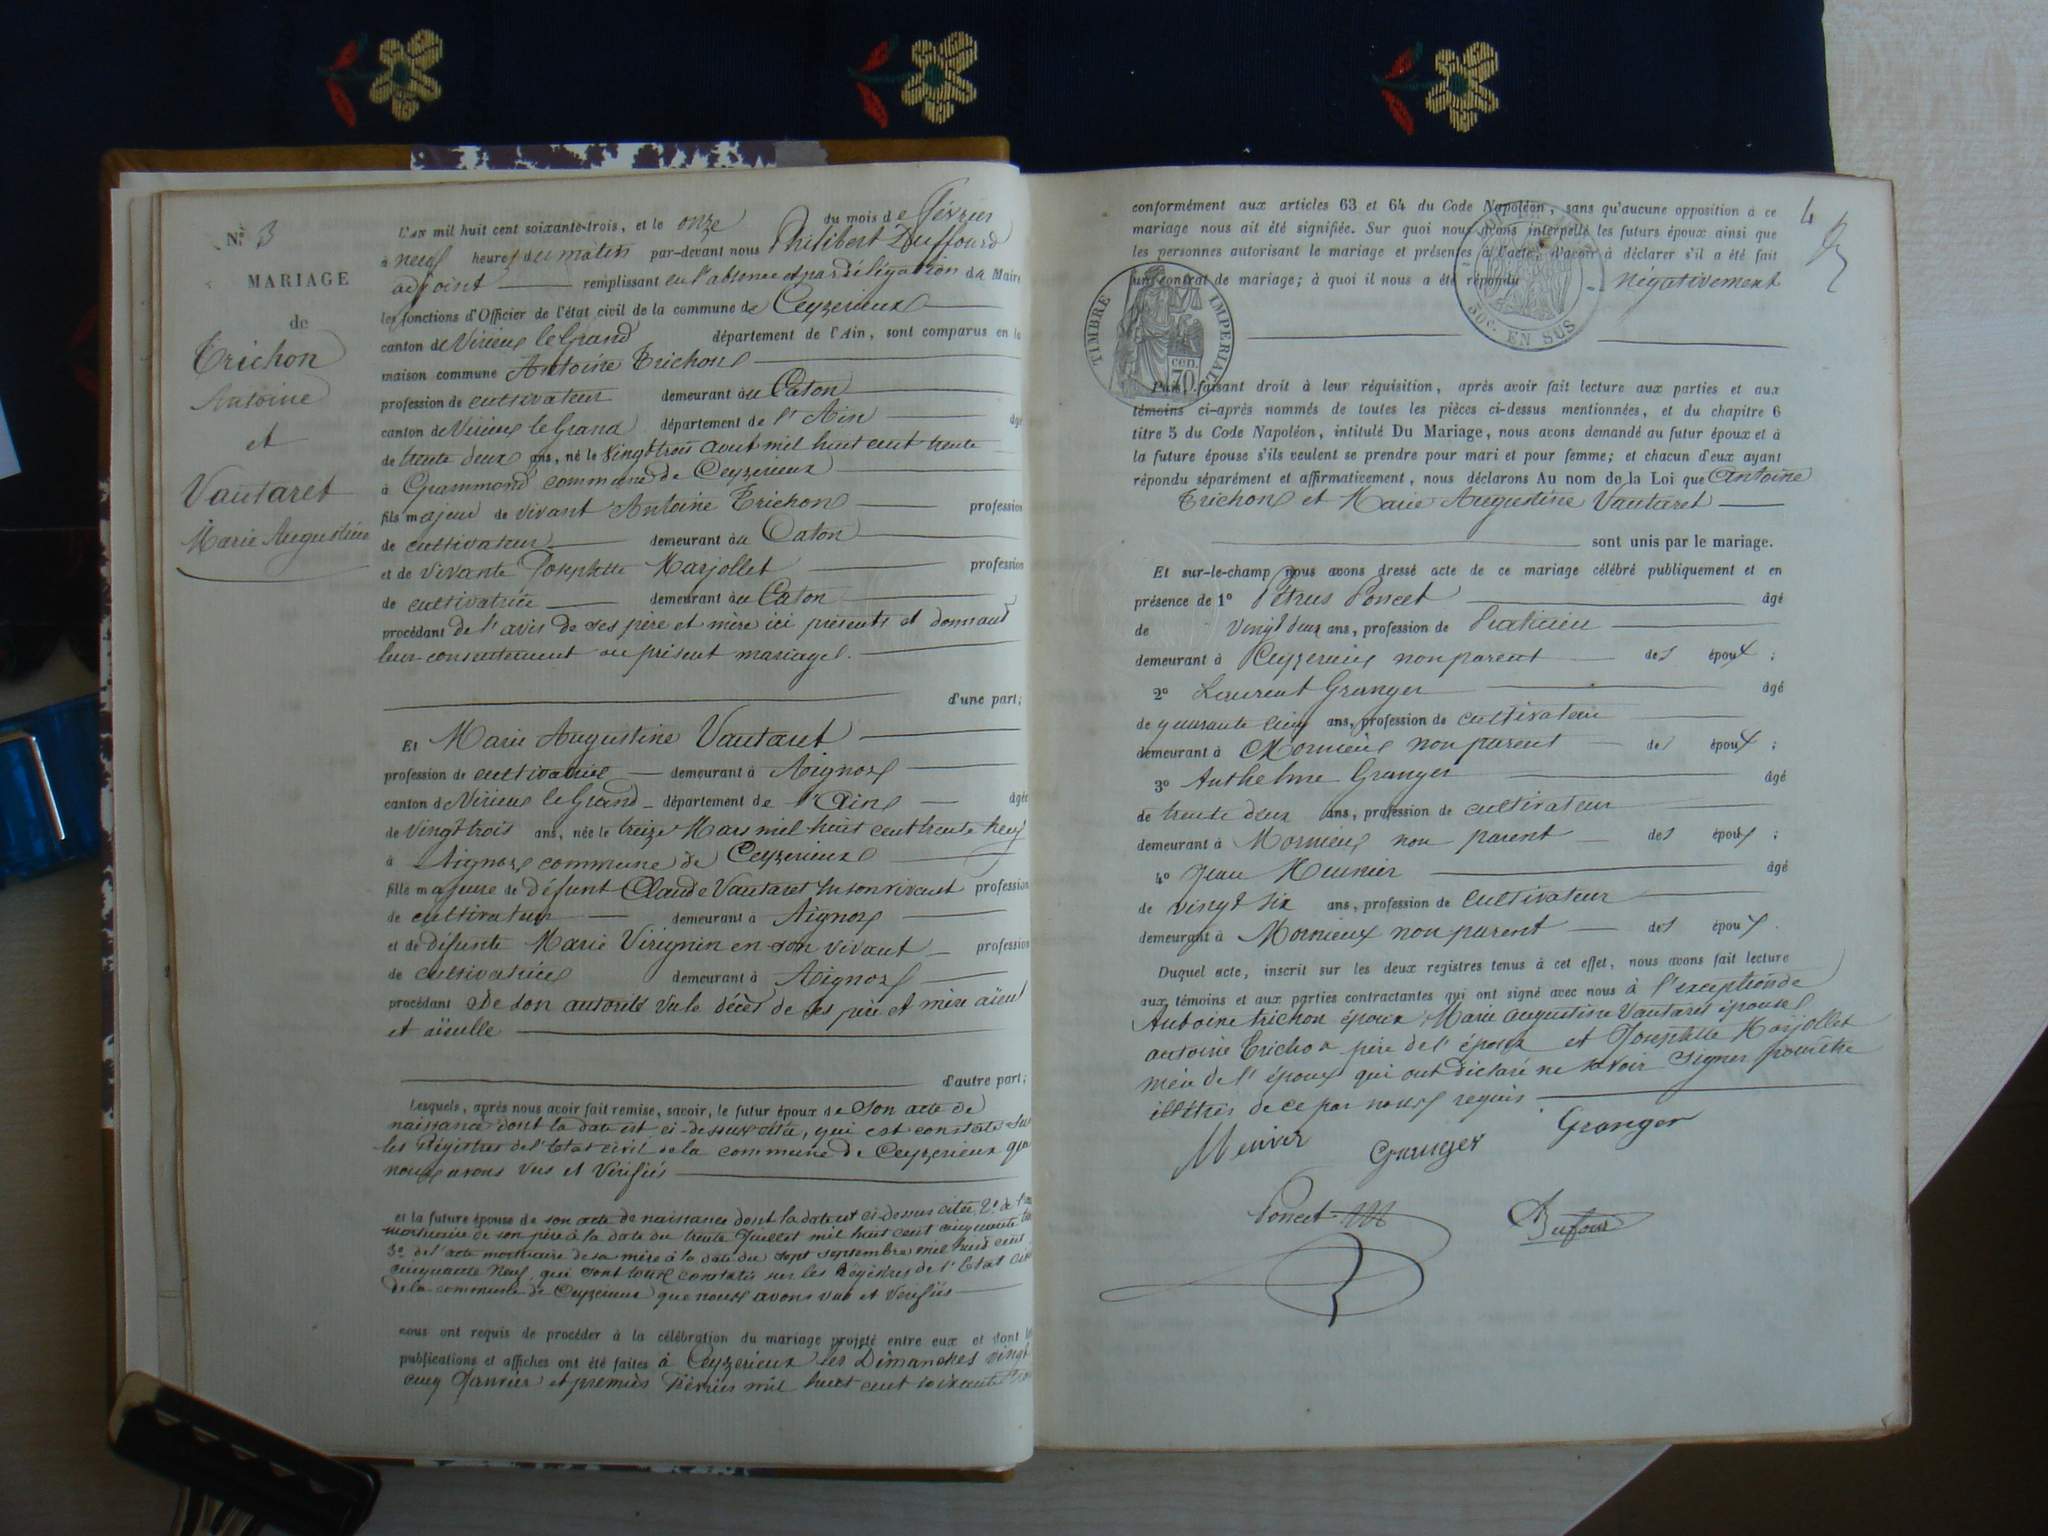 N° 3
MARIAGE
de
Trichon
Antoine
et
Vautaret
Marie Augustine
L'AN mil huit cent soixante-trois, et le onze du mois de Février
à neuf heures du matin par-devant nous Philibert Duffourd
adjoint remplissant en l'absence et par délégation du Maire
les fonctions d'Officier de l'état civil de la commune de Ceyzerieux
canton de Virieux le Grand département de l'Ain, sont comparus en la
maison commune Antoine Trichon
profession de cultivateur demeurant à Caton
canton de Virieux le Grand département de l'Ain âgé
de trente deux ans, né le vingt trois aout mil huit cent trente
à Grammond commune de Ceyzerieux
fils majeur de vivant Antoine Trichon profession
de cultivateur demeurant à Caton
et de vivante Josephette Marjollet profession
de cultivatrice demeurant à Caton
procédant de l'avis de ses père et mère ici présents et donnant
leur consentement au présent mariage.
d'une part;
Et Marie Augustine Vautaret
profession de cultivatrice demeurant à Aignoz
canton de Virieux le Grand département de l'Ain âgée
de vingt trois ans, née le treize Mars mil huit cent trente neuf
à Aignoz commune de Ceyzerieux
fille majeure de défunt Claude Vautaret en son vivant profession
de cultivateur demeurant à Aignoz
et de défunte Marie Virignin en son vivant profession
de cultivatrice demeurant à Aignoz
procédant De son autorité vu le décès de ses père et mère aïeul
et aïeulle
d'autre part;
Lesquels, après nous avoir fait remise, savoir, le futur époux de Son acte de
naissance dont la date est ci-dessus citée, qui est constaté sur
les Régistres de l'Etat civil de la commune de Ceyzerieux que
nous avons vus et vérifiés
et la future épouse de son acte de naissance dont la date est ci-dessus citée, 2° de l'acte
mortuaire de son père à la date du trente Juillet mil huit cent cinquante
3° de l'acte mortuaire de sa mère à la date du sept septembre mil huit cent
cinquante neuf, qui sont tous constatés sur les Régistres de l'Etat civil
de la commune de Ceyzerieux que nous avons vus et vérifiés
nous ont requis de procéder à la célébration du mariage projeté entre eux et dont les
publications et affiches ont été faites à Ceyzerieux les Dimanches vingt
cinq Janvier et premier Février mil huit cent soixante trois
4
conformément aux articles 63 et 64 du Code Napoléon, sans qu'aucune opposition à ce
mariage nous ait été signifiée. Sur quoi nous avons interpellé les futurs époux ainsi que
les personnes autorisant le mariage et présentes à l'acte, d'avoir à déclarer s'il a été fait
un contrat de mariage; à quoi il nous a été répondu négativement
TIMBRE IMPERIAL
70 cen
50c. EN SUS
Puis, faisant droit à leur réquisition, après avoir fait lecture aux parties et aux
témoins ci-après nommés de toutes les pièces ci-dessus mentionnées, et du chapitre 6
titre 5 du Code Napoléon, intitulé Du Mariage, nous avons demandé au futur époux et à
la future épouse s'ils veulent se prendre pour mari et pour femme; et chacun d'eux ayant
répondu séparément et affirmativement, nous déclarons Au nom de la Loi que Antoine
Trichon et Marie Augustine Vautaret
sont unis par le mariage.
Et sur-le-champ nous avons dressé acte de ce mariage célébré publiquement et en
présence de 1° Pétrus Poncet âgé
de vingt deux ans, profession de Praticien
demeurant à Ceyzerieux non parent des époux;
2° Laurent Granger âgé
de quarante cinq ans, profession de cultivateur
demeurant à Mornieux non parent des époux;
3° Anthelme Granger âgé
de trente deux ans, profession de cultivateur
demeurant à Mornieux non parent des époux;
4° Jean Meunier âgé
de vingt six ans, profession de cultivateur
demeurant à Mornieux non parent des époux.
Duquel acte, inscrit sur les deux registres tenus à cet effet, nous avons fait lecture
aux témoins et aux parties contractantes qui ont signé avec nous à l'exception de
Antoine trichon époux, Marie augustine Vautaret épouse
antoine Trichon père de l'époux et Josephette Marjollet
mère de l'époux qui ont déclaré ne savoir signer pour être
illettrés de ce par nous requis
Meunier
Granger
Granger
Poncet
Dufour